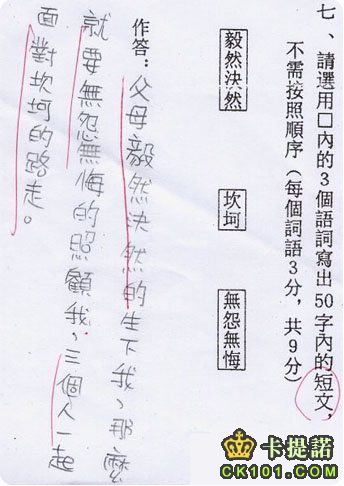 七、請選用□內的3個語詞寫出50字內的短文，
不需按照順序（每個詞語3分，共9分）
毅然決然
坎坷
無怨無悔
作答：父母毅然決然的生下我，那麼
就要無怨無悔的照顧我，三個人一起
面對坎坷的路走。
卡提諾
CK101.COM